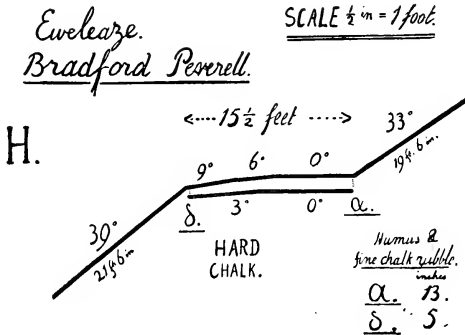 Eweleaze.
Bradford Peverell.
SCALE ½ in = 1 foot.
<---- 15½ feet ---->
H.
33°
19 ft. 6 in.
9° 6° 0°
δ. 3° 0° α.
39°
21 ft 6 in
HARD
CHALK.
Humus &
fine chalk rubble.
inches
α. 13.
δ. " 5.